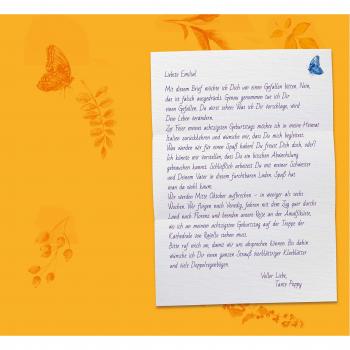 Liebste Emilia!
Mit diesem Brief möchte ich Dich um einen Gefallen bitten. Nein,
das ist falsch ausgedrückt. Genau genommen tue ich Dir
einen Gefallen. Du wirst sehen: Was ich Dir vorschlage, wird
Dein Leben verändern.
Zur Feier meines achtzigsten Geburtstags möchte ich in meine Heimat
Italien zurückkehren und wünsche mir, dass Du mich begleitest.
Was werden wir für einen Spaß haben! Du freust Dich doch, oder?
Ich könnte mir vorstellen, dass Du ein bisschen Abwechslung
gebrauchen kannst. Schließlich arbeitest Du mit meiner Schwester
und Deinem Vater in diesem furchtbaren Laden. Spaß hat
man da wohl kaum.
Wir werden Mitte Oktober aufbrechen – in weniger als sechs
Wochen. Wir fliegen nach Venedig, fahren mit dem Zug durchs
Land nach Florenz und beenden unsere Reise an der Amalfiküste,
wo ich an meinem achtzigsten Geburtstag auf der Treppe der
Kathedrale von Ravello stehen muss.
Bitte ruf mich an, damit wir uns absprechen können. Bis dahin
wünsche ich Dir einen ganzen Strauß vierblättriger Kleeblätter
und viele Doppelregenbögen.
Voller Liebe,
Tante Poppy